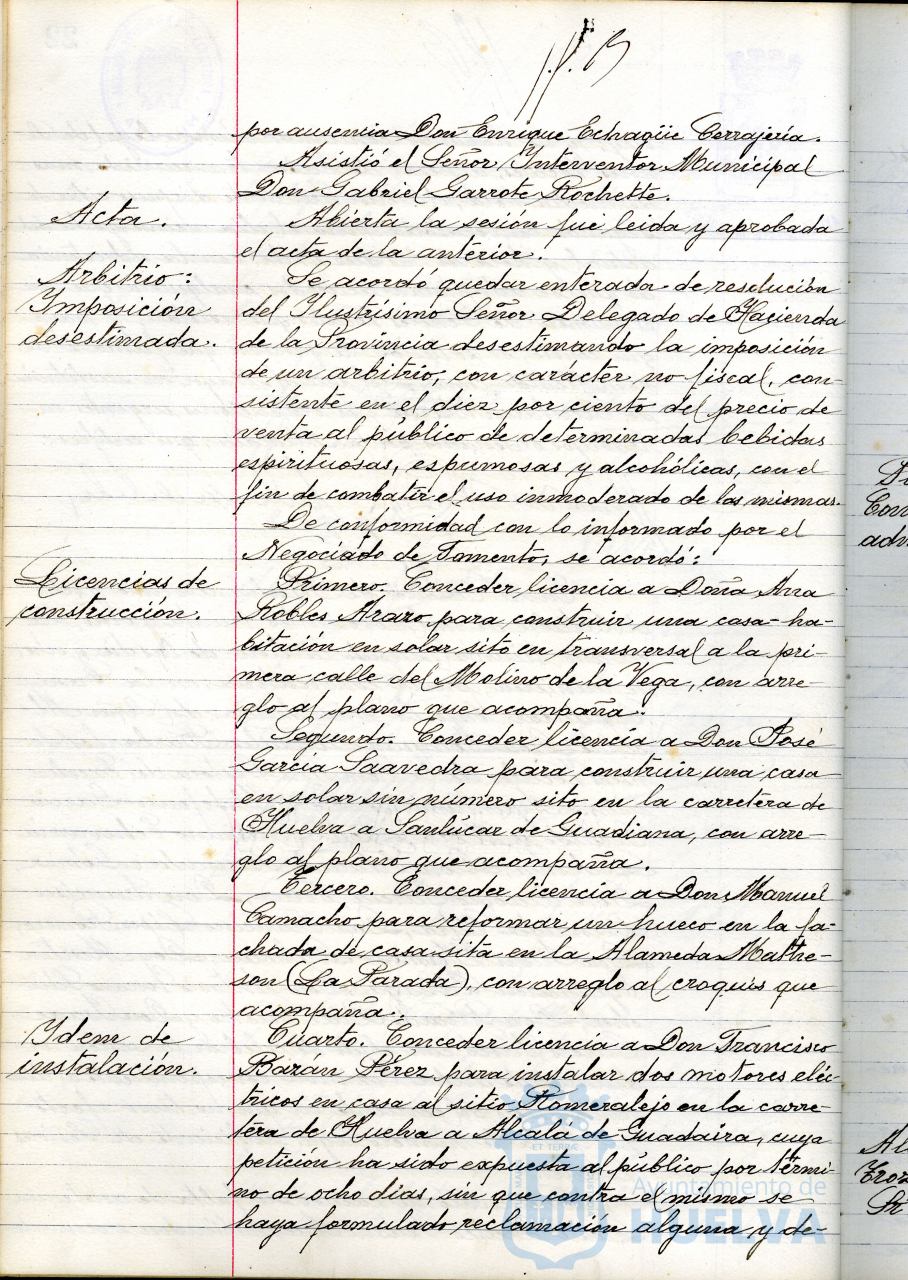 por ausencia Don Enrique Echagüe Cerrajería.
Asistió el Señor Interventor Municipal
Don Gabriel Garrote Rochette.
Acta.
Abierta la sesión fué leida y aprobada
el acta de la anterior.
Arbitrio:
Imposición
desestimada.
Se acordó quedar enterada de resolución
del Ilustrísimo Señor Delegado de Hacienda
de la Provincia desestimando la imposición
de un arbitrio, con carácter no fiscal, con-
sistente en el diez por ciento del precio de
venta al público de determinadas bebidas
espirituosas, espumosas y alcohólicas, con el
fin de combatir el uso inmoderado de las mismas.
De conformidad con lo informado por el
Negociado de Fomento, se acordó:
Licencias de
construcción.
Primero. Conceder licencia a Doña Ana
Robles Arazo para construir una casa-ha-
bitación en solar sito en transversal a la pri-
mera calle del Molino de la Vega, con arre-
glo al plano que acompaña.
Segundo. Conceder licencia a Don José
García Saavedra para construir una casa
en solar sin número sito en la carretera de
Huelva a Sanlúcar de Guadiana, con arre-
glo al plano que acompaña.
Tercero. Conceder licencia a Don Manuel
Camacho para reformar un hueco en la fa-
chada de casa sita en la Alameda Mathe-
son (La Parada), con arreglo al croquis que
acompaña.
Ydem de
instalación.
Cuarto. Conceder licencia a Don Francisco
Bazán Pérez para instalar dos motores eléc-
tricos en casa al sitio Romeralejo en la carre-
tera de Huelva a Alcalá de Guadaira, cuya
petición ha sido expuesta al público por térmi-
no de ocho dias, sin que contra el mismo se
haya formulado reclamación alguna y de-
Ayuntamiento de
HUELVA